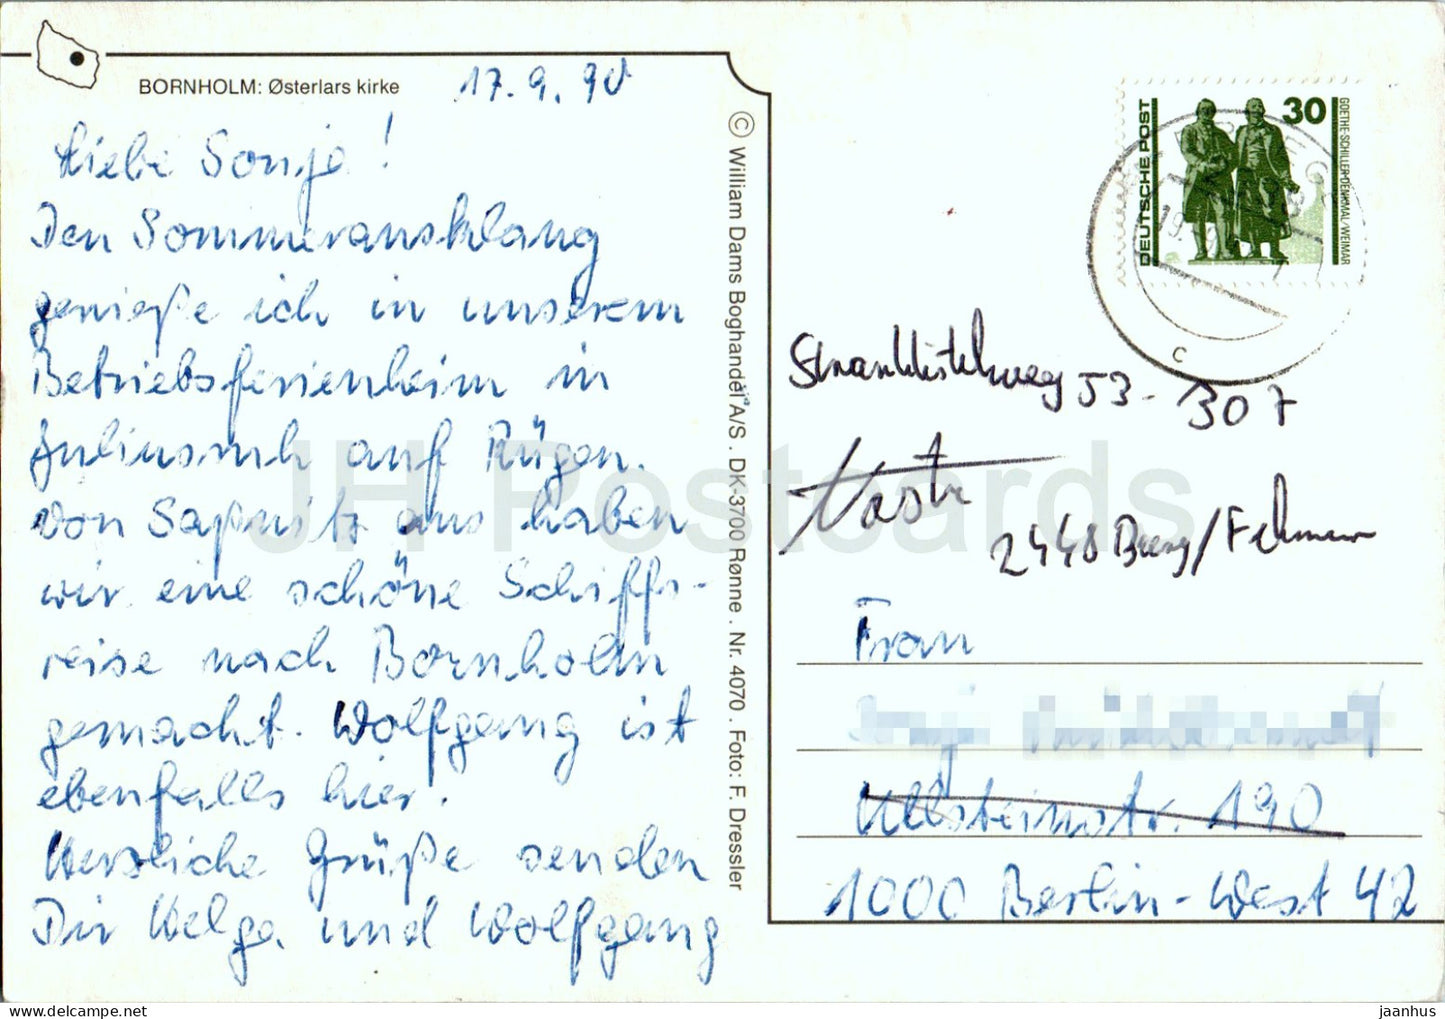 BORNHOLM: Østerlars kirke
17.9.90
Liebe Sonja!
Den Sommerausklang
genieße ich in unserem
Betriebsferienheim in
Juliusruh auf Rügen.
Von Saßnitz aus haben
wir eine schöne Schiffs-
reise nach Bornholm
gemacht. Wolfgang ist
ebenfalls hier.
Herzliche Grüße senden
Dir Helga und Wolfgang
© William Dams Boghandel A/S . DK-3700 Rønne . Nr. 4070 . Foto: F. Dressler
DEUTSCHE POST
30
GOETHE-SCHILLER-DENKMAL/WEIMAR
C
53-307
2448 Burg/Fehmarn
Frau
Ullsteinstr. 190
1000 Berlin-West 42
JH Postcards
jaanhus
delcampe.net